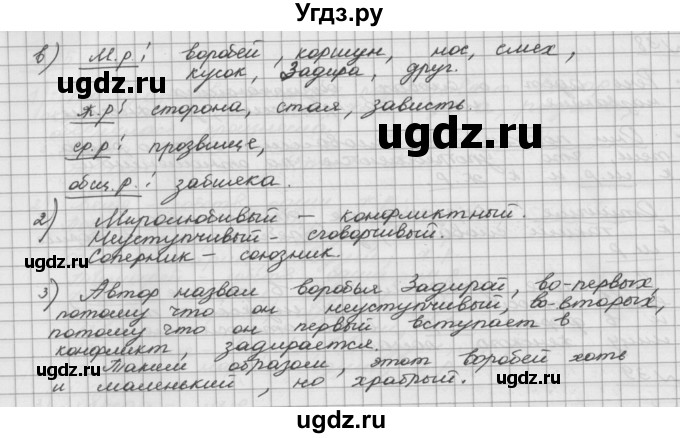 Угдз.ру
в) м.р: воробей, коршун, нос, смех,
кусок, Задира, друг.
ж.р: сторона, стая, зависть.
ср.р: прозвище,
общ.р.: забияка.
2) Миролюбивый – конфликтный.
Неуступчивый – сговорчивый.
Соперник – союзник.
3) Автор назвал воробья Задирой, во-первых,
потому что он неуступчивый, во-вторых,
потому что он первый вступает в
конфликт, задирается.
Таким образом, этот воробей хоть
и маленький, но храбрый.
ugdz.ru
ugdz.ru
ugdz.ru
ugdz.ru
ugdz.ru
ugdz.ru
ugdz.ru
ugdz.ru